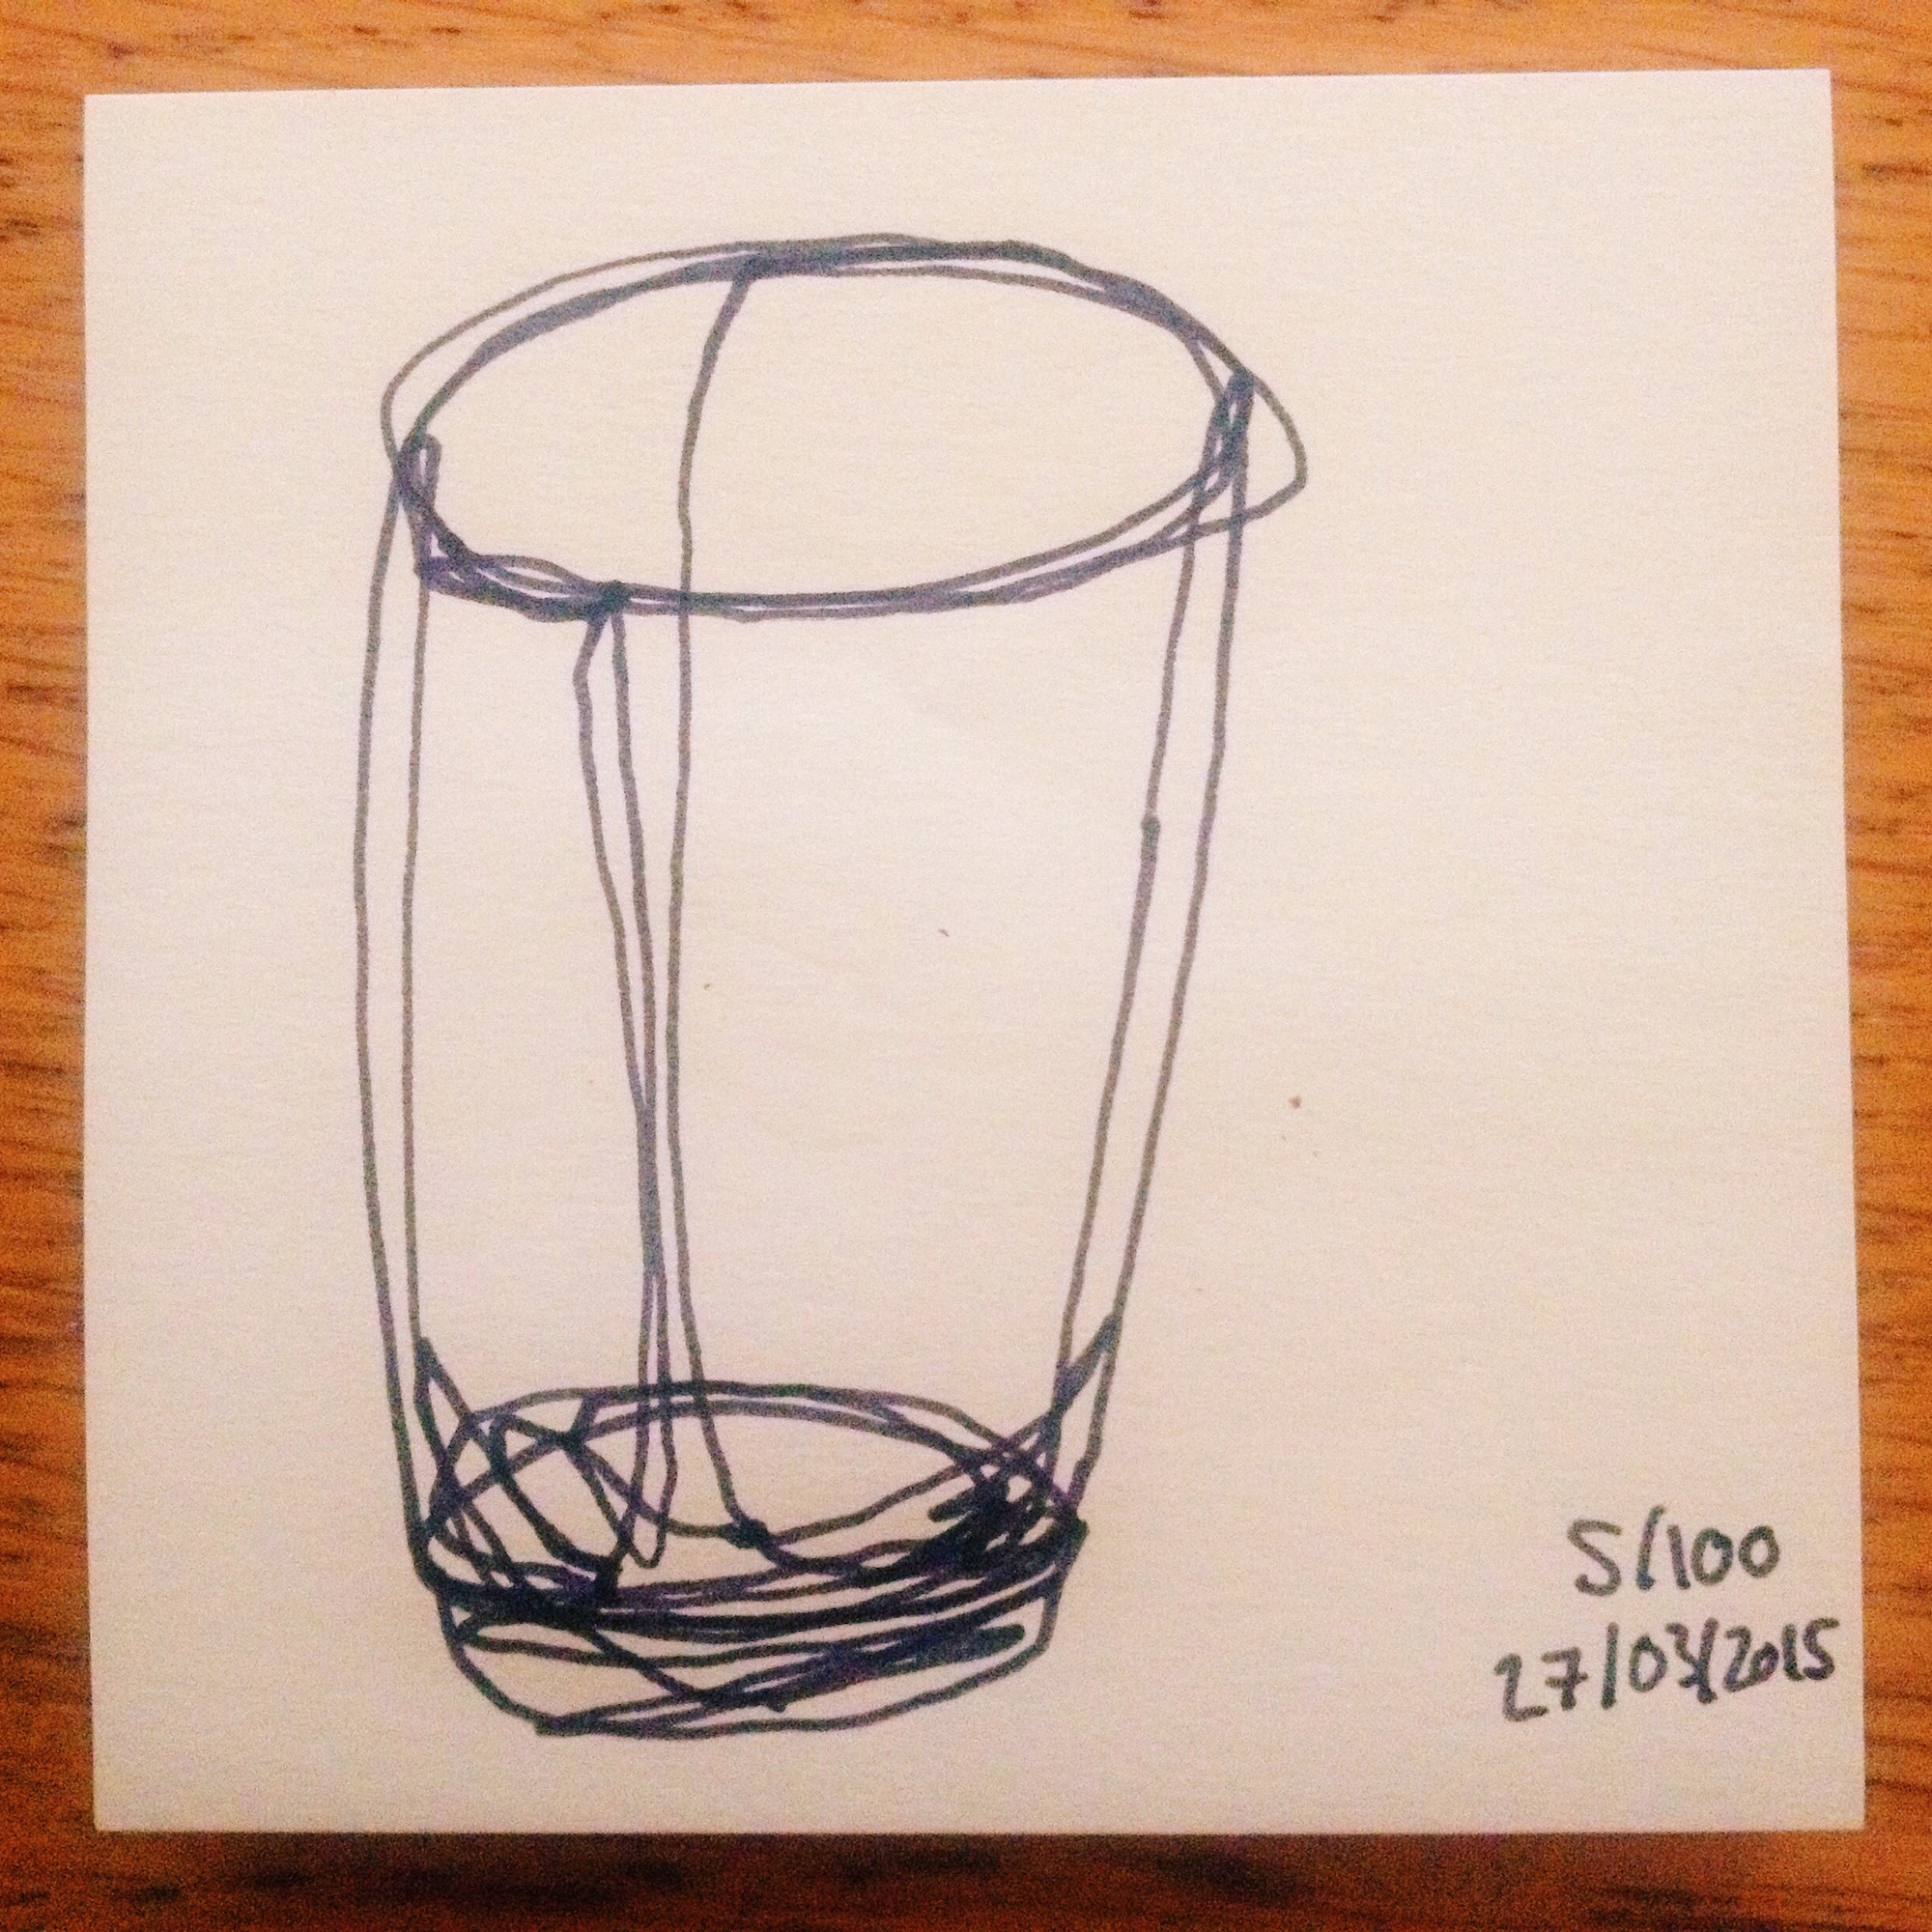 5/100
27/03/2015